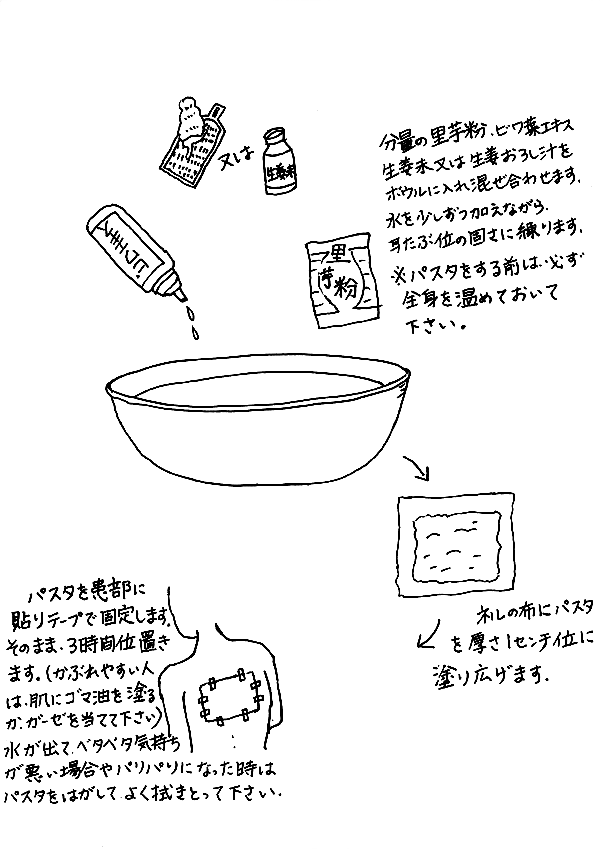 又は
生姜末
ビワエキス
里
芋
粉
分量の里芋粉、ビワ葉エキス
生姜末又は生姜おろし汁を
ボウルに入れ混ぜ合わせます。
水を少しずつ加えながら、
耳たぶ位の固さに練ります。
※パスタをする前は、必ず
全身を温めておいて
下さい。
ネルの布にパスタ
を厚さ1センチ位に
塗り広げます。
パスタを患部に
貼りテープで固定します。
そのまま、3時間位置き
ます。(かぶれやすい人
は、肌にゴマ油を塗る
か、ガーゼを当てて下さい)
水が出て、ベタベタ気持ち
が悪い場合やパリパリになった時は
パスタをはがして、よく拭きとって下さい。